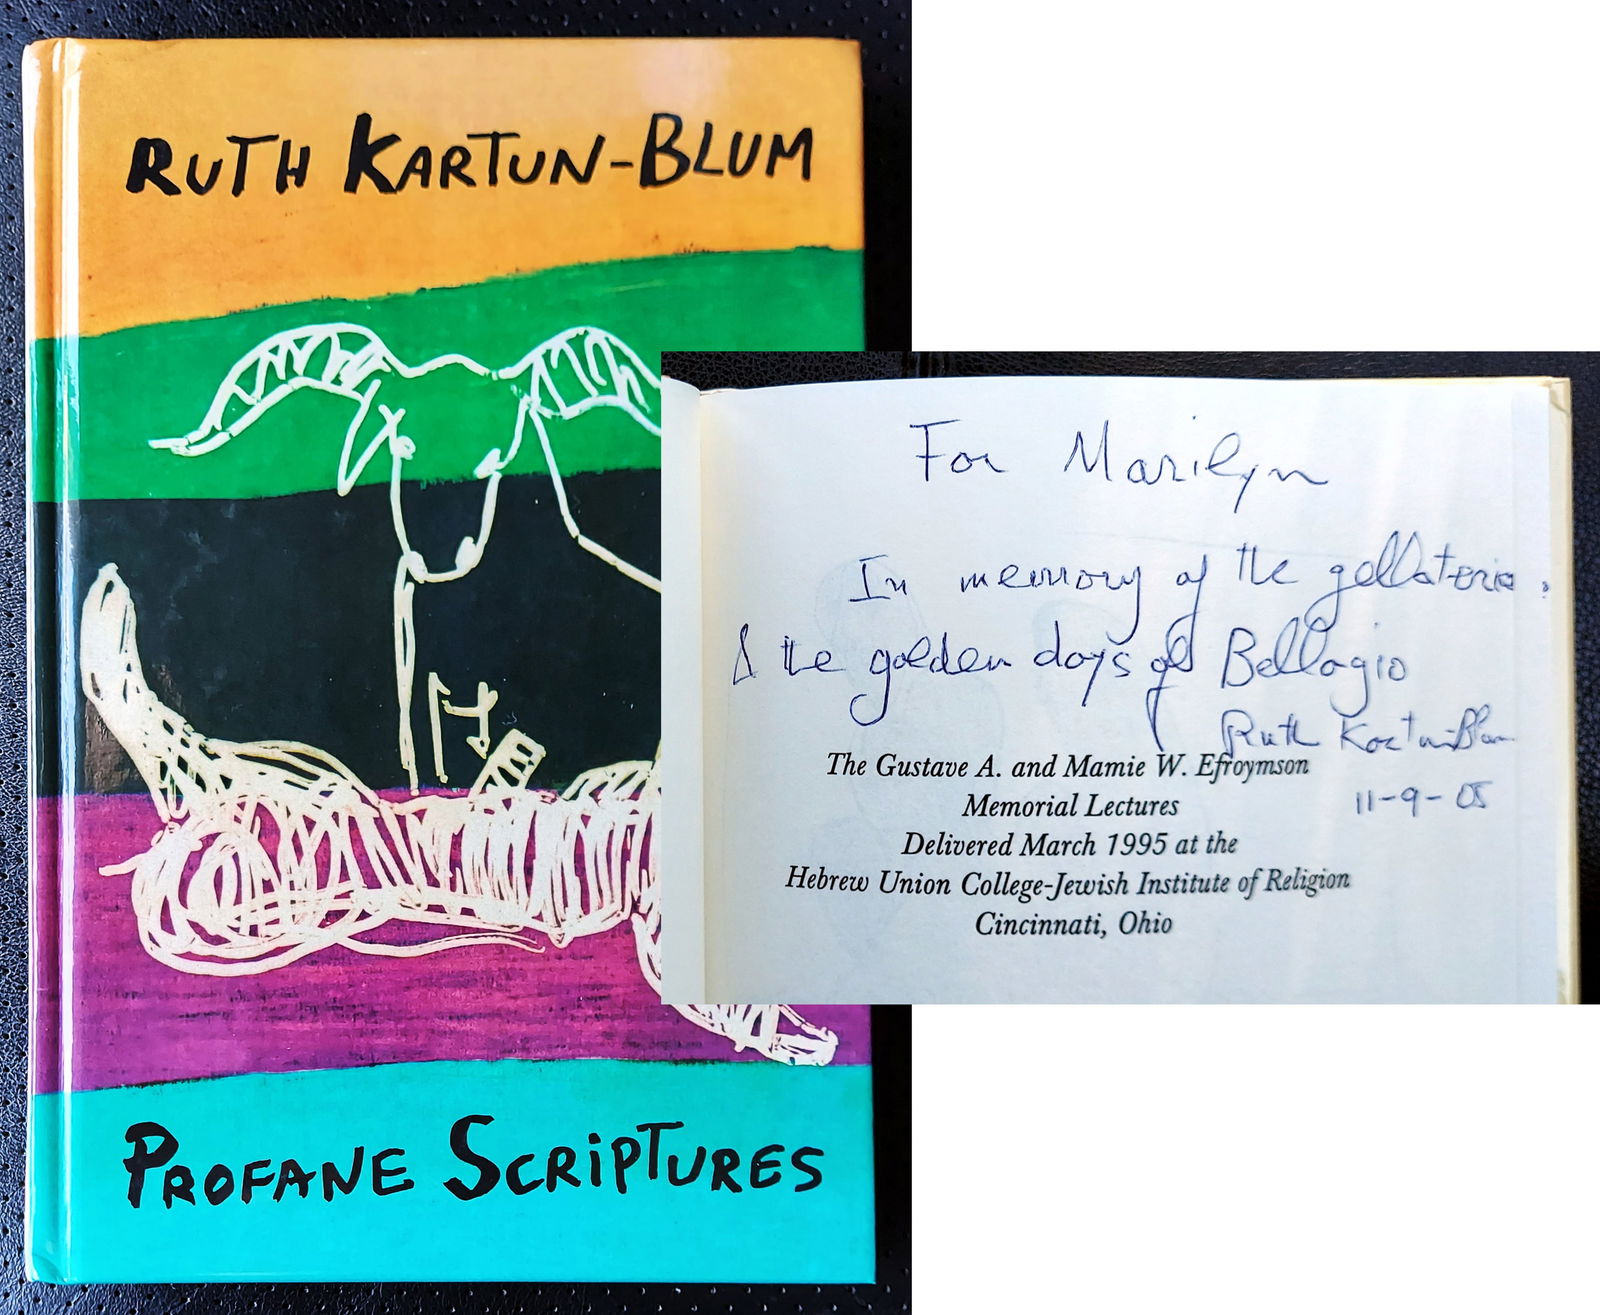 RUTH KARTUN-BLUM
PROFANE SCRIPTURES
For Marilyn
In memory of the gellaterie.
& the golden days of Bellagio
Ruth Kartun-Blum
11-9-05
The Gustave A. and Mamie W. Efroymson
Memorial Lectures
Delivered March 1995 at the
Hebrew Union College-Jewish Institute of Religion
Cincinnati, Ohio